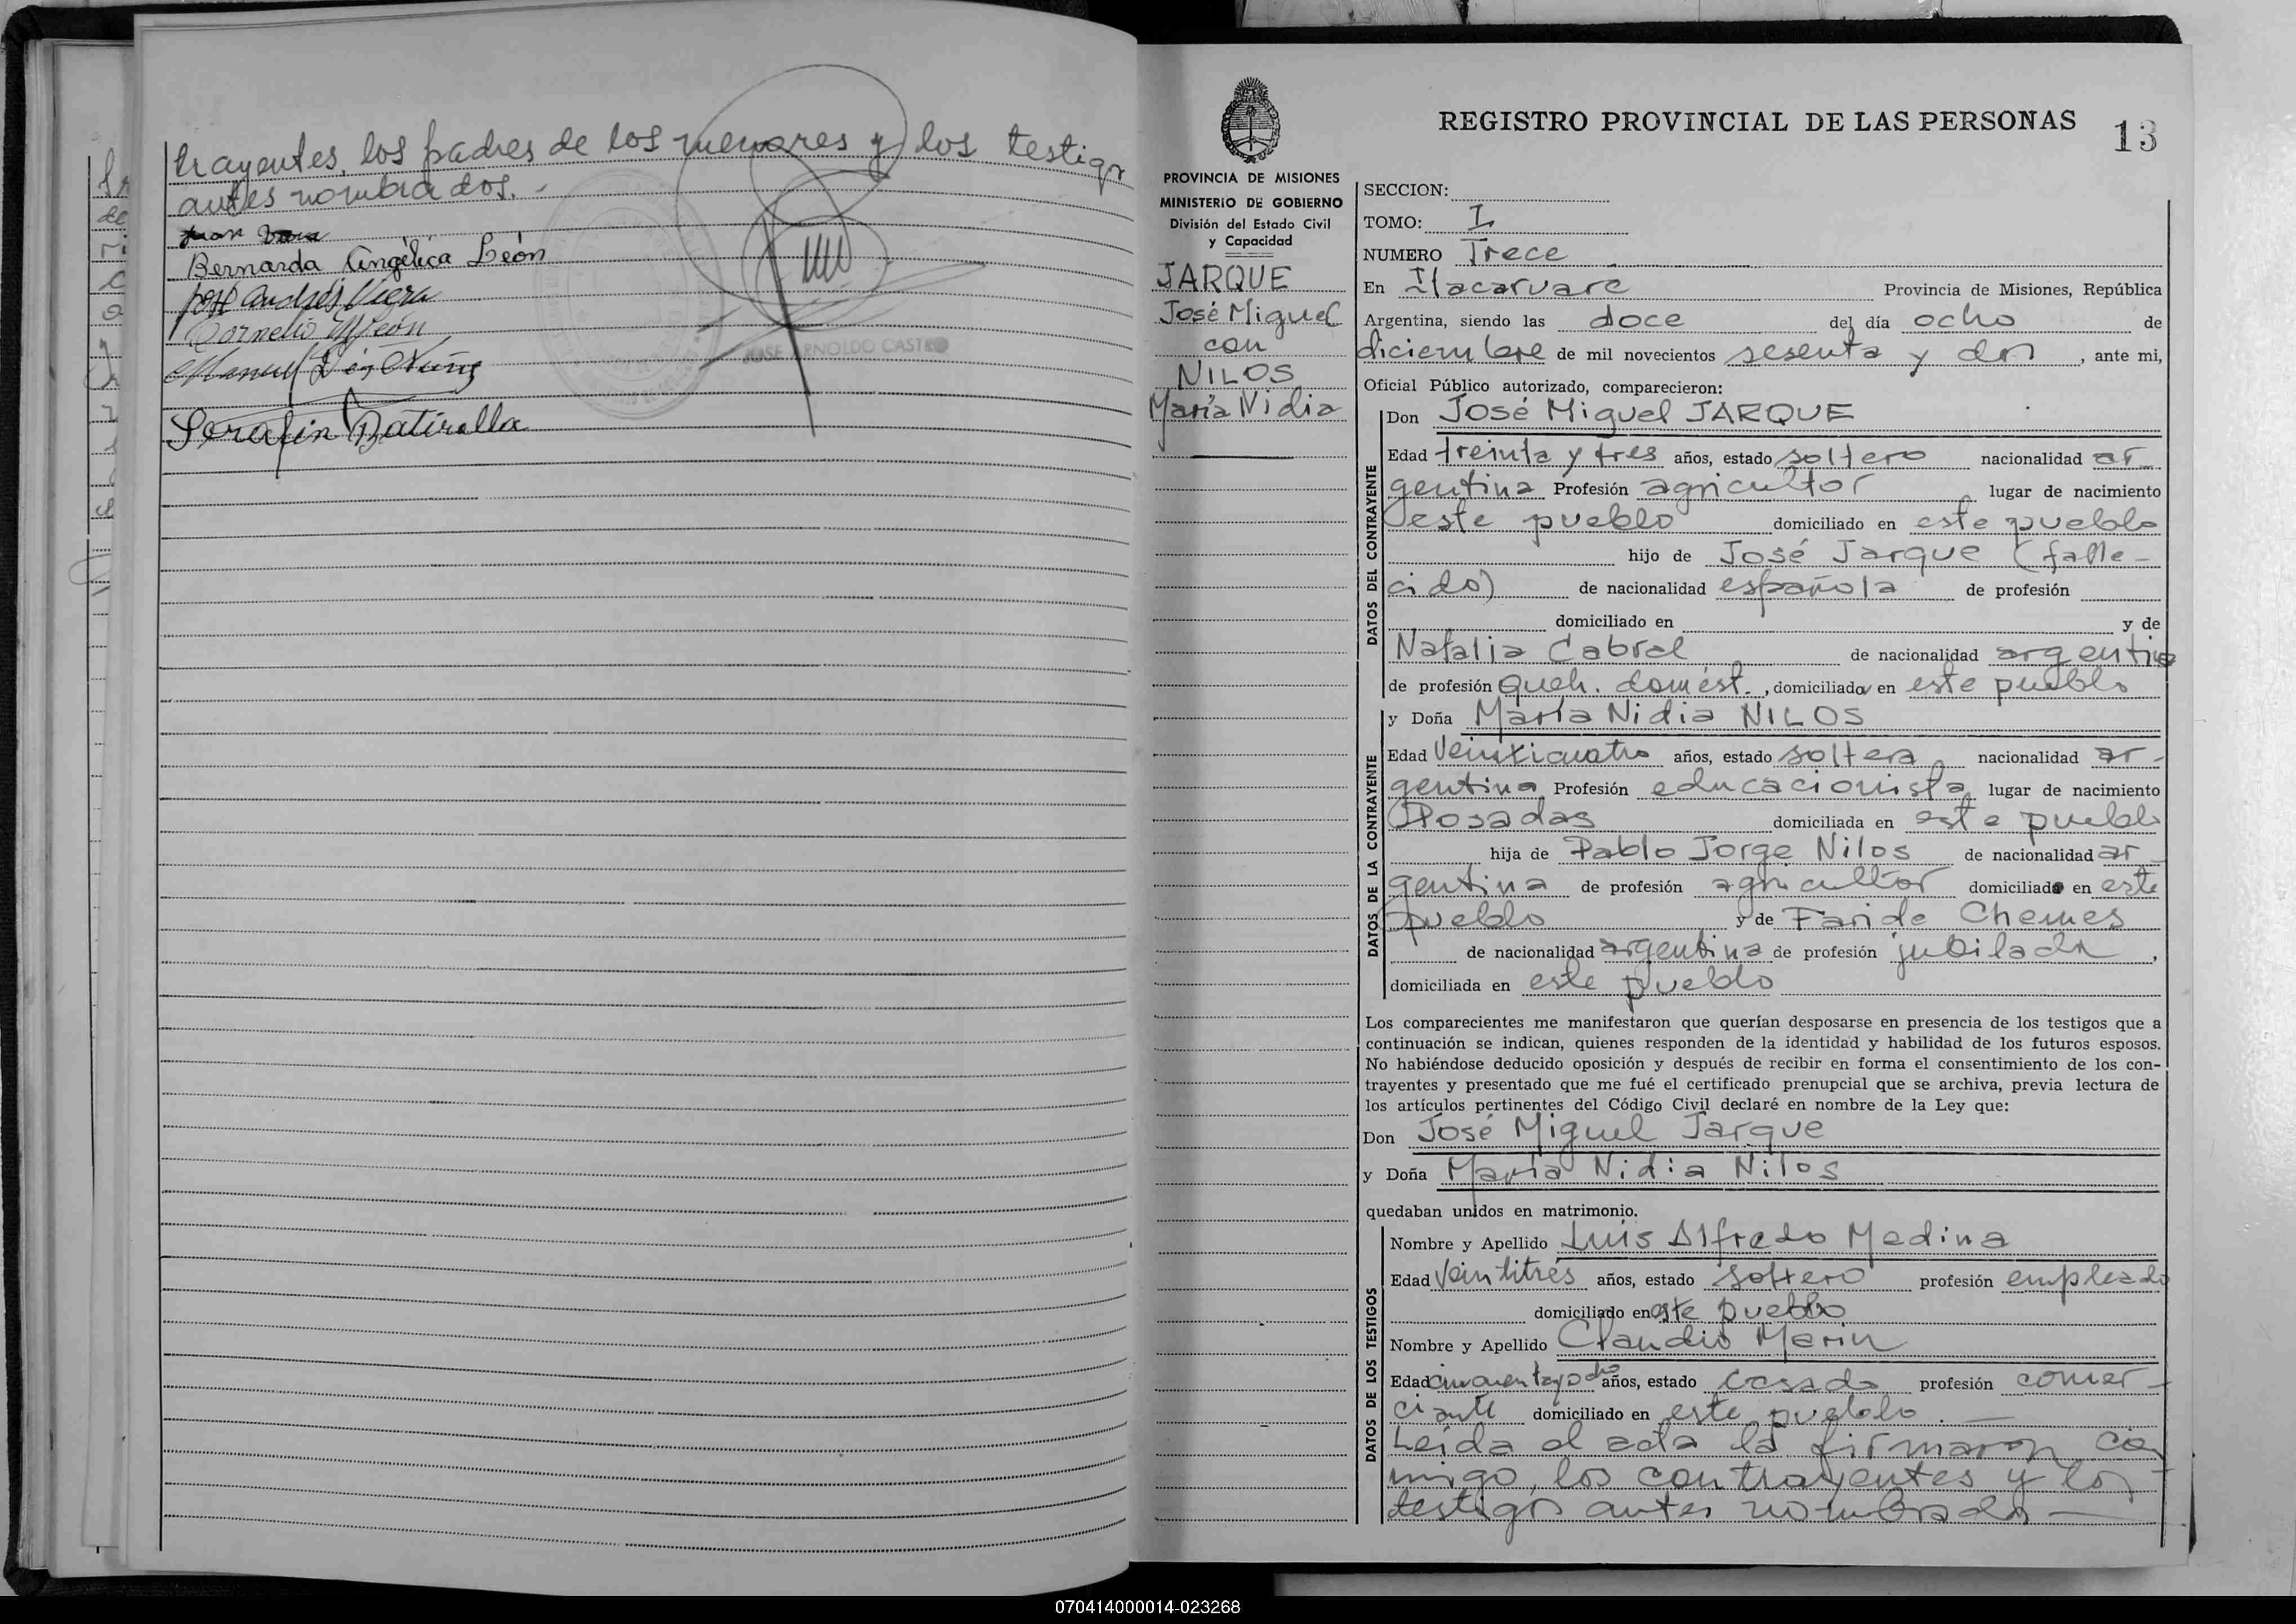 trayentes, los padres de los menores y los testigo
antes nombrados.-
Juan
Bernarda Angélica León
José Andrés Viera
Cornelio León
Manuel
Serafin Batiralla
JOSE ARNOLDO CASTRO
PROVINCIA DE MISIONES
MINISTERIO DE GOBIERNO
División del Estado Civil
y Capacidad
JARQUE
José Miguel
con
NILOS
María Nidia
REGISTRO PROVINCIAL DE LAS PERSONAS
13
SECCION:
TOMO: I
NUMERO Trece
En Itacaruare Provincia de Misiones, República
Argentina, siendo las doce del día ocho de
diciembre de mil novecientos sesenta y dos, ante mi,
Oficial Público autorizado, comparecieron:
DATOS DEL CONTRAYENTE
Don José Miguel JARQUE
Edad treinta y tres años, estado soltero nacionalidad ar
gentina Profesión agricultor lugar de nacimiento
este pueblo domiciliado en este pueblo
hijo de José Jarque (falle-
cido) de nacionalidad española de profesión
domiciliado en y de
Natalia Cabral de nacionalidad argentina
de profesión queh. domést., domiciliada en este pueblo
DATOS DE LA CONTRAYENTE
y Doña María Nidia NILOS
Edad Veinticuatro años, estado soltera nacionalidad ar-
gentina Profesión educacionista lugar de nacimiento
Posadas domiciliada en este pueblo
hija de Pablo Jorge Nilos de nacionalidad ar
gentina de profesión agricultor domiciliado en este
pueblo y de Faride Chemes
de nacionalidad argentina de profesión jubilada,
domiciliada en este pueblo
Los comparecientes me manifestaron que querían desposarse en presencia de los testigos que a
continuación se indican, quienes responden de la identidad y habilidad de los futuros esposos.
No habiéndose deducido oposición y después de recibir en forma el consentimiento de los con-
trayentes y presentado que me fué el certificado prenupcial que se archiva, previa lectura de
los artículos pertinentes del Código Civil declaré en nombre de la Ley que:
Don José Miguel Jarque
y Doña María Nidia Nilos
quedaban unidos en matrimonio.
DATOS DE LOS TESTIGOS
Nombre y Apellido Luis Alfredo Medina
Edad Veintitrés años, estado soltero profesión empleado
domiciliado en este pueblo
Nombre y Apellido Claudio Marin
Edad cincuenta y ocho años, estado casado profesión comer-
ciante domiciliado en este pueblo.—
Leida el acta la firmaron con
migo, los contrayentes y los
testigos antes nombrados—
070414000014-023268